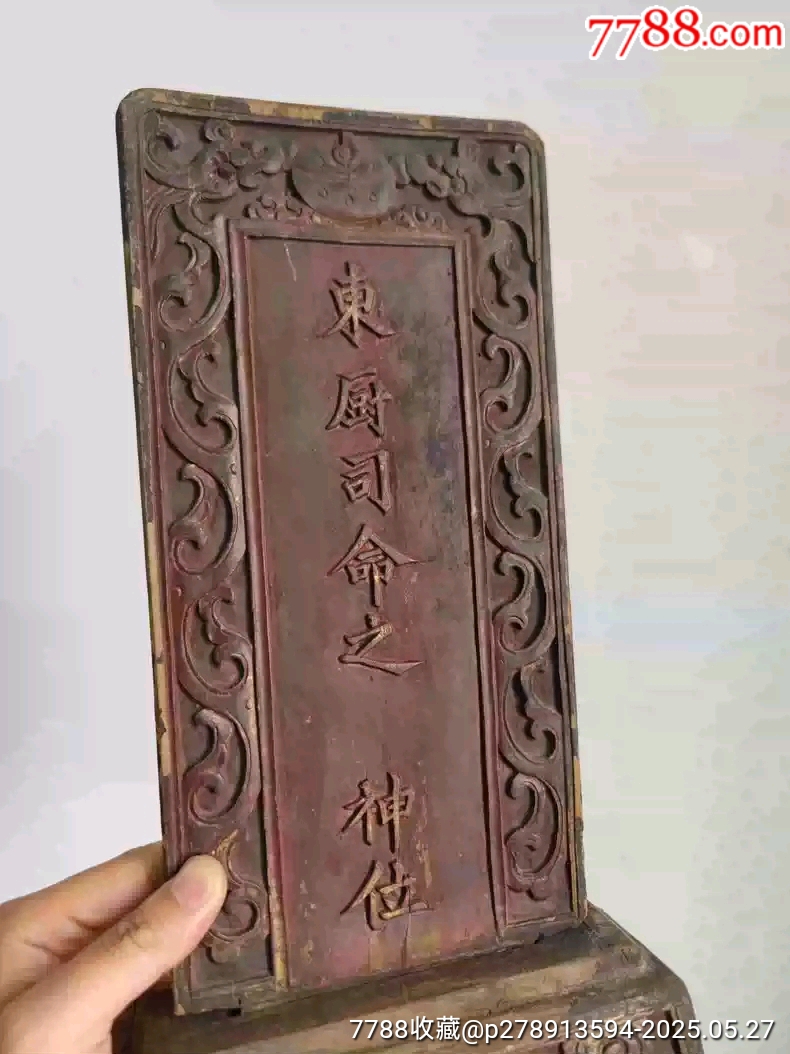 7788.com
東厨司命之 神位
7788收藏@p278913594-2025.05.27